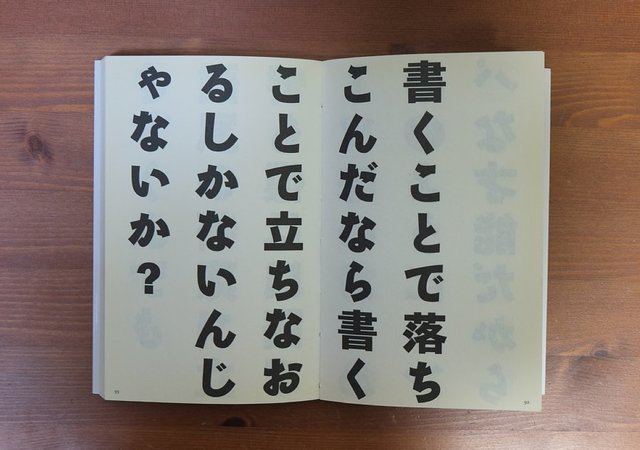 書くことで落ち
こんだなら書く
ことで立ちなお
るしかないんじ
ゃないか?